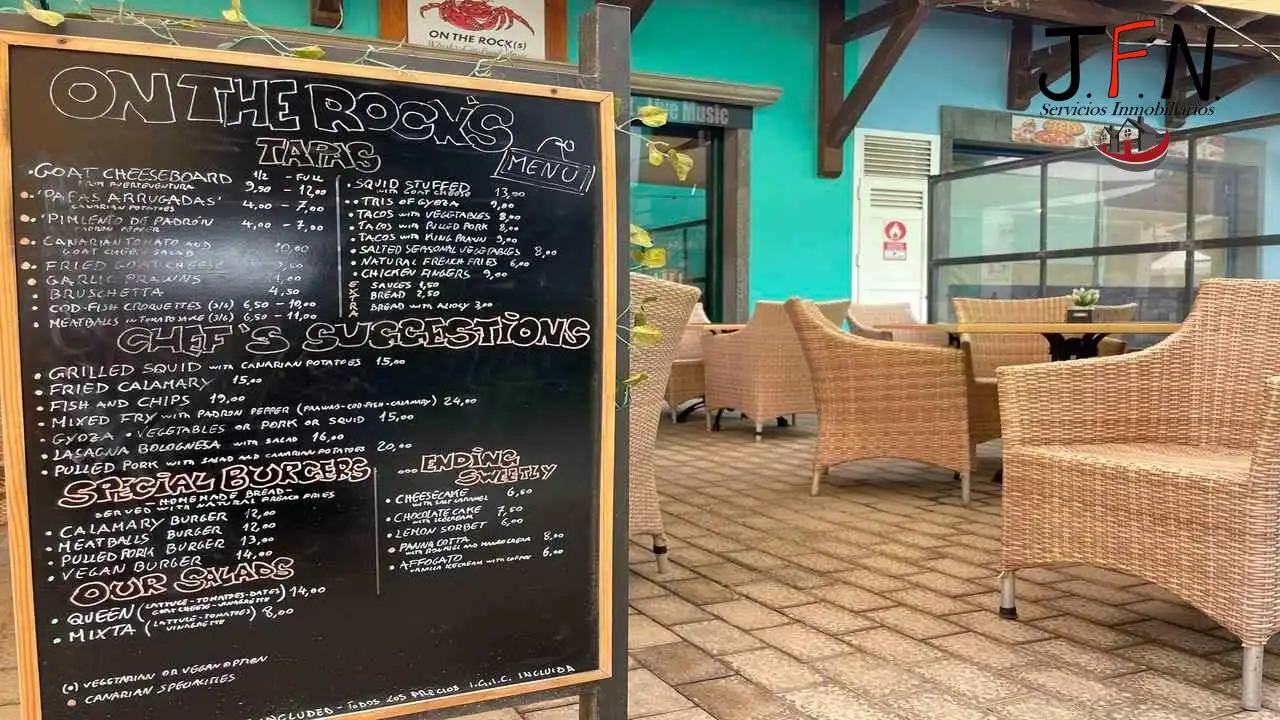 ON THE ROCK(S)
ON THE ROCK'S
TAPAS
MENÙ
• GOAT CHEESEBOARD 1/2 - FULL
FROM FUERTEVENTURA 9,50 - 12,00
• 'PAPAS ARRUGADAS' 4,00 - 7,00
CANARIAN POTATOES
• 'PIMIENTO DE PADRON 4,00 - 7,00
PADRON PEPPER
• CANARIAN TOMATO AND
GOAT CHEESE SALAD 10,00
• FRIED GOAT CHEESE
• GARLIC PRAWNS
• BRUSCHETTA 4,50
• COD-FISH CROQUETTES (3/6) 6,50 - 10,00
• MEATBALLS IN TOMATO SAUCE (3/6) 6,50 - 11,00
• SQUID STUFFED
WITH GOAT CHEESE 13,00
• TRIS OF GYOZA 9,00
• TACOS WITH VEGETABLES 8,00
• TACOS WITH PULLED PORK 8,00
• TACOS WITH KING PRAWN 9,00
• SALTED SEASONAL VEGETABLES 8,00
• NATURAL FRENCH FRIES 6,00
• CHICKEN FINGERS 9,00
EXTRA
SAUCES 1,50
BREAD 2,50
BREAD WITH ALIOLY 3,00
CHEF'S SUGGESTIONS
• GRILLED SQUID WITH CANARIAN POTATOES 15,00
• FRIED CALAMARY 15,00
• FISH AND CHIPS 19,00
• MIXED FRY WITH PADRON PEPPER (PRAWNS-COD-FISH-CALAMARY) 24,00
• GYOZA • VEGETABLES OR PORK OR SQUID 15,00
• LASAGNA BOLOGNESA WITH SALAD 16,00
• PULLED PORK WITH SALAD AND CANARIAN POTATOES 20,00
SPECIAL BURGERS
HOMEMADE BREAD
SERVED WITH NATURAL FRENCH FRIES
• CALAMARY BURGER 12,00
• MEATBALLS BURGER 12,00
• PULLED PORK BURGER 13,00
• VEGAN BURGER 14,00
OUR SALADS
• QUEEN (LATTUCE-TOMATOES-DATES) 14,00
GOAT CHEESE-VINAGRETTE
• MIXTA (LATTUCE-TOMATOES) 8,00
VINAGRETTE
... ENDING
SWEETLY
• CHEESECAKE 6,50
WITH SALT CARAMEL
• CHOCOLATE CAKE 7,50
WITH ICECREAM
• LEMON SORBET 6,00
• PANNA COTTA 8,00
• AFFOGATO 6,00
VANILLA ICECREAM WITH COFFEE
(•) VEGETARIAN OR VEGAN OPTION
• CANARIAN SPECIALITIES
INCLUDED - TODOS LOS PRECIOS I.G.I.C. INCLUIDA
Live Music
J.F.N.
Servicios Inmobiliarios